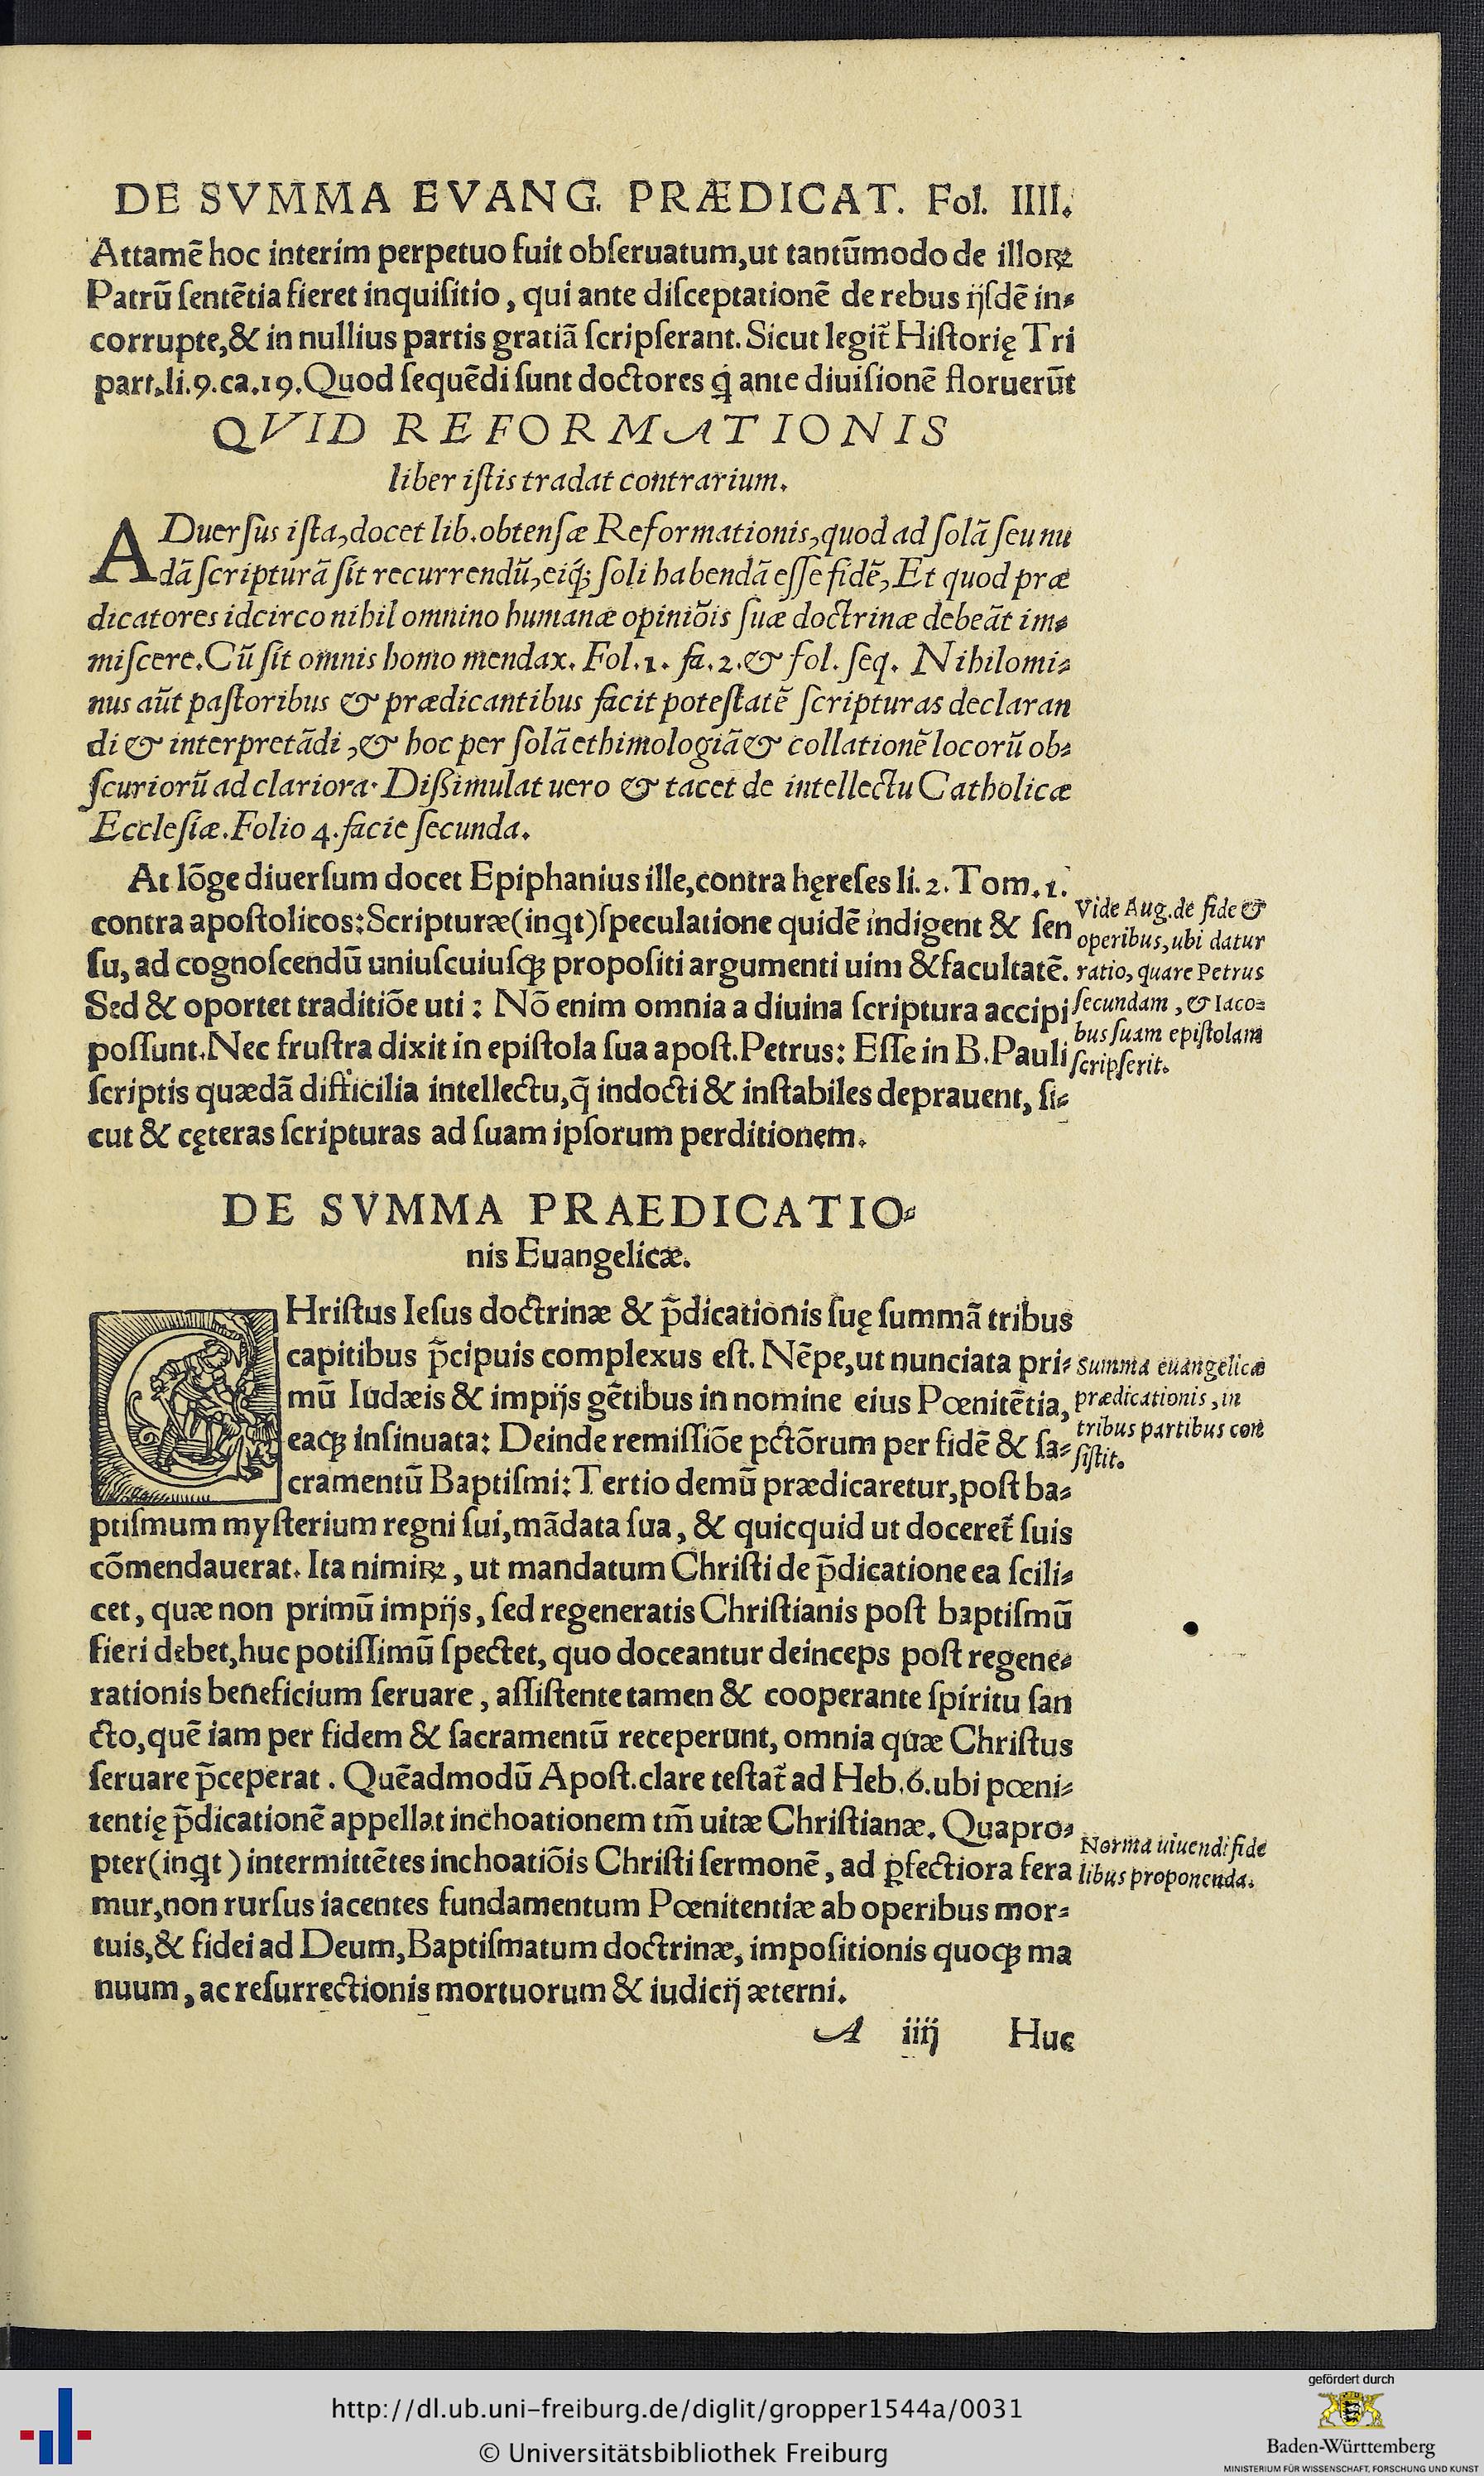 DE SVMMA EVANG. PRÆDICAT. Fol. IIII.
Attamē hoc interim perpetuo fuit obſeruatum,ut tantūmodo de illoꝝ
Patrū ſentētia fieret inquiſitio, qui ante diſceptationē de rebus ijſdē in⸗
corrupte,& in nullius partis gratiā ſcripſerant. Sicut legit᷑ Hiſtorię Tri
part.li.9.ca.19.Quod ſequēdi ſunt doctores ꝗ ante diuiſionē floruerūt
QVID REFORMATIONIS
liber iſtis tradat contrarium.
ADuerſus iſta,docet lib.obtenſæ Reformationis,quod ad ſolā ſeu nu
dā ſcripturā ſit recurrendū,eiq́; ſoli habendā eſſe fidē,Et quod præ
dicatores idcirco nihil omnino humanæ opiniōis ſuæ doctrinæ debeāt im⸗
miſcere.Cū ſit omnis homo mendax. Fol.1. fa.2.& fol. ſeq. Nihilomi⸗
nus aūt paſtoribus & prædicantibus facit poteſtatē ſcripturas declaran
di & interpretādi ,& hoc per ſolā ethimologiā & collationē locorū ob⸗
ſcuriorū ad clariora· Dißimulat uero & tacet de intellectu Catholicæ
Eccleſiæ.Folio 4.facie ſecunda.
At lōge diuerſum docet Epiphanius ille,contra hęreſes li.2.Tom.1.
contra apoſtolicos:Scripturæ(inꝗt)ſpeculatione quidē indigent & ſen
ſu, ad cognoſcendū uniuſcuiuſcꝙ propoſiti argumenti uim &facultatē.
Sed & oportet traditiōe uti : Nō enim omnia a diuina ſcriptura accipi
poſſunt.Nec fruſtra dixit in epiſtola ſua apoſt.Petrus: Eſſe in B.Pauli
ſcriptis quædā difficilia intellectu,q̄ indocti & inſtabiles deprauent, ſi⸗
cut & cęteras ſcripturas ad ſuam ipſorum perditionem.
Vide Aug.de fide &
operibus,ubi datur
ratio, quare Petrus
ſecundam ,& Iaco⸗
bus ſuam epiſtolam
ſcripſerit.
DE SVMMA PRAEDICATIO⸗
nis Euangelicæ.
CHriſtus Ieſus doctrinæ & p̄dicationis ſuę ſummā tribus
capitibus p̄cipuis complexus eſt. Nēpe,ut nunciata pri⸗
mū Iudæis & impijs gētibus in nomine eius Pœnitētia,
eacꝙ inſinuata: Deinde remiſſiōe pctōrum per fidē & ſa⸗
cramentū Baptiſmi:Tertio demū prædicaretur,poſt ba⸗
ptiſmum myſterium regni ſui,mādata ſua, & quicquid ut doceret᷑ ſuis
cōmendauerat. Ita nimiꝝ, ut mandatum Chriſti de p̄dicatione ea ſcili⸗
cet, quæ non primū impijs, ſed regeneratis Chriſtianis poſt baptiſmū
fieri debet,huc potiſſimū ſpectet, quo doceantur deinceps poſt regene⸗
rationis beneficium ſeruare, aſſiſtente tamen & cooperante ſpíritu ſan
cto,quē iam per fidem & ſacramentū receperunt, omnia quæ Chriſtus
ſeruare p̄ceperat . Quēadmodū Apoſt.clare teſtat᷑ ad Heb.6.ubi pœni⸗
tentię p̄dicationē appellat inchoationem tm̄ uitæ Chriſtianæ. Quapro⸗
pter(inꝗt) intermittētes inchoatiōis Chriſti ſermonē, ad ꝑfectiora fera
mur,non rurſus iacentes fundamentum Pœnitentiæ ab operibus mor⸗
tuis,& fidei ad Deum,Baptiſmatum doctrinæ, impoſitionis quocꝙ ma
nuum, ac reſurrectionis mortuorum & iudicij æterni.
Summa euangelicæ
prædicationis,in
tribus partibus con
ſiſtit.
Norma uiuendi fide
libus proponenda.
A iiij Huc
http://dl.ub.uni-freiburg.de/diglit/gropper1544a/0031
© Universitätsbibliothek Freiburg
gefördert durch
Baden-Württemberg
MINISTERIUM FÜR WISSENSCHAFT, FORSCHUNG UND KUNST